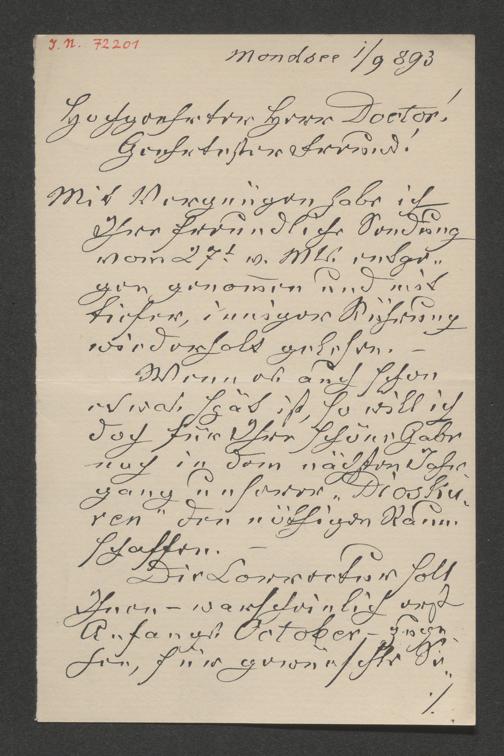 J.N. 72201
Mondsee 1/9 893
Hochgeehrter Herr Doctor!
Geehrtester Freund!
Mit Vergnügen habe ich
Ihre freundliche Sendung
vom 27t v. Mts. entge-
gen genommen und mit
tiefer, inniger Rührung
wiederholt gelesen. –
Wenn es auch schon
etwas spät ist, so will ich
doch für Ihre schöne Gabe
noch in dem nächsten Jahr
gang unserer „Diosku-
ren" den nöthigen Raum
schaffen. –
Die Correctur soll
Ihnen – warscheinlich erst
Anfangs October –
für gewünschte
./.